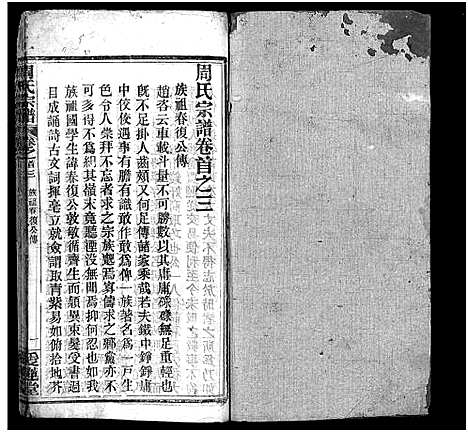 周氏宗譜卷首之三
族祖春復公傳
趙咨云車載斗量不可勝數以其庸庸碌碌無足重輕也
旣不足掛人齒頰又何足傳諸家乘哉若夫鐵中錚錚庸
中佼佼遇事有膽有識敢作敢為俾一族著名為一戶生
色令人崇拜不忘者求之宗族邈焉寡儔求之鄉黨亦不
可多得不為紹其嶺末竟聽湮没無聞焉抑何忍也如我
族祖國學生諱春復公敦敏循齊生而頴異束髮受書過
目成誦詩古文詞揮毫立就僉謂取青紫易如俯拾地芥
周氏宗譜
卷之首三
族祖春復公傳
一
愛蓮堂